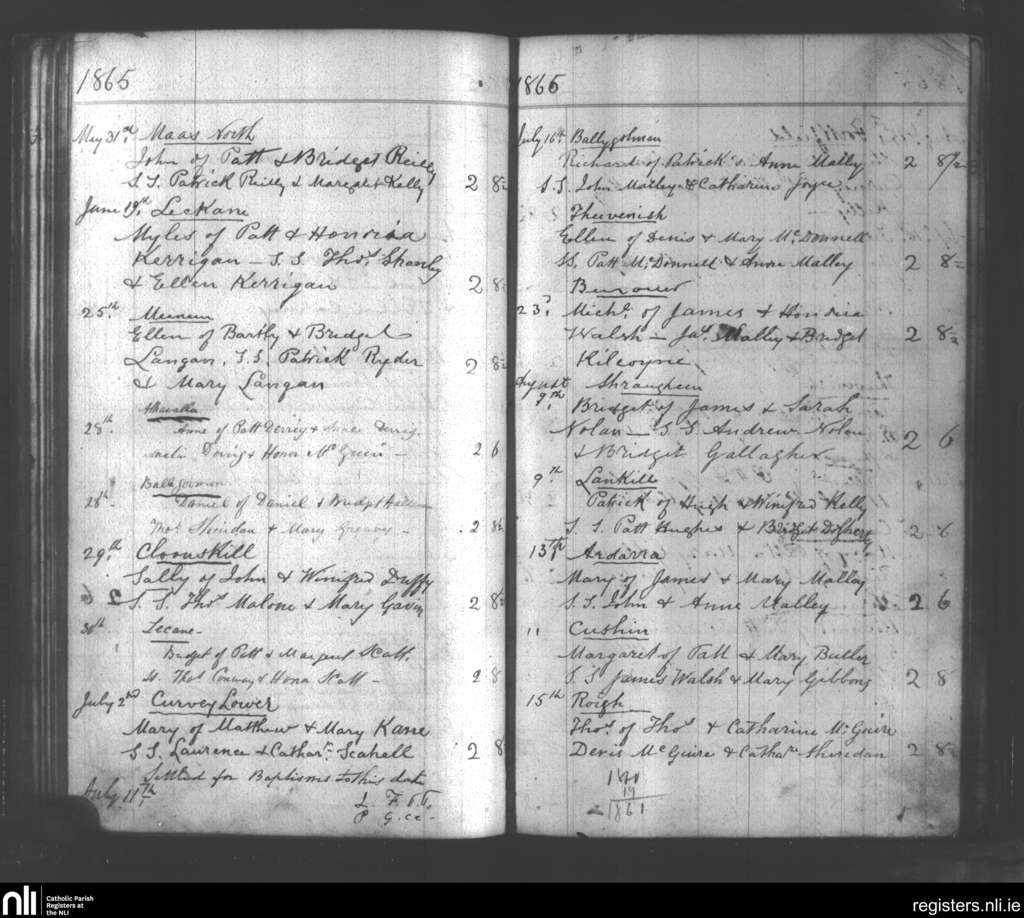 1865
May 31st Maas North
John of Patt & Bridget Reilly
S.S. Patrick Reilly & Margaret Kelly 2 8
June 19th Leckane
Myles of Patt & Honoria
Kerrigan — S.S Thos. Shanly
& Ellen Kerrigan 2 8
25th
Ellen of Bartly & Bridget
Langan, S.S. Patrick Ryder 2 8
& Mary Langan
28th Anne of Patt Derrig &
& Honor 2 6
28th Daniel of Daniel & Bridget
Thos. Sheridan & Mary 2
29th Cloonskill
Sally of John & Winifred Duffy
S.S. Thos. Malone & Mary Gavin 2 8
30th Lecane
Bridget of Patt & Margaret Scott.
SS. Thos Conway & Hona Scott — 2 8
July 2nd Curvey Lower
Mary of Matthew & Mary Kane
S S. Laurence & Cathar. Scahell 2 8
Settled for Baptisms to this date
July 11th
P G. cc
1865
July 16th Ballygolman
Richard of Patrick & Anne Malley 2 8
S.S. John Malley & Catharine Joyce
Theevenish
Ellen of Denis & Mary McDonnell
SS. Patt McDonnell & Anne Malley 2 8
23. Michl. of James & Honoria
Walsh — Jas. Malley & Bridget 2 8
Kilcoyne
August Shraugheen
9th. Bridget of James & Sarah
Nolan — S S Andrew Nolan 2 6
& Bridget Gallagher
9th Lankill
Patrick of Hugh & Winifred Kelly
S. S. Patt Hughes & Bridget 2 6
13th Ardarra
Mary of James & Mary Malley
S.S. John & Anne Malley 2 6
" Cushin
Margaret of Patt & Mary Butler
S.S. James Walsh & Mary Gibbons 2 8
15th Roigh
Thos. of Thos. & Catharine McGuire
Denis McGuire & Cathar. Sheridan 2 8
19
1861
nli Catholic Parish
Registers at
the NLI
registers.nli.ie